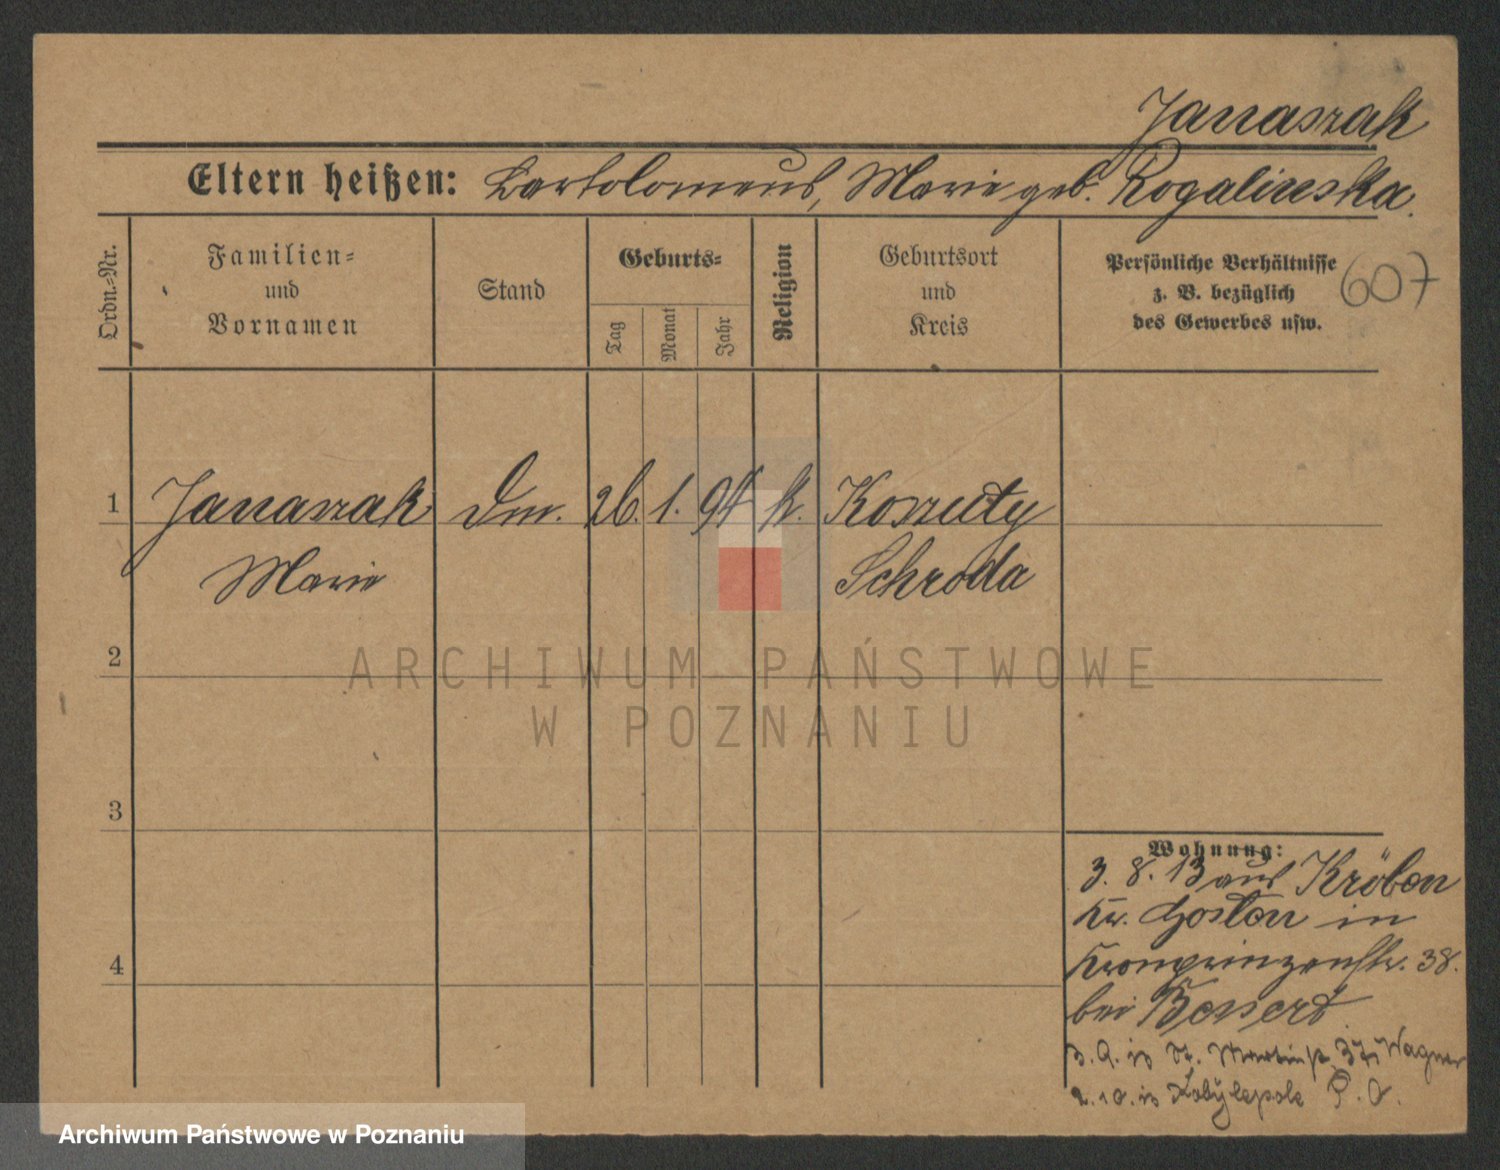 Janaszak
Eltern heißen: Bartolomeus, Marie geb. Rogalinska.
Ordn.-Nr.
Familien-
und
Vornamen
Stand
Geburts-
Tag
Monat
Jahr
Religion
Geburtsort
und
Kreis
Persönliche Verhältnisse
z. B. bezüglich
des Gewerbes usw.
607
1 Janaszak Dm. 26. 1. 94 k. Koszuty
Marie Schroda
2
3
4
Wohnung:
3. 8. 13 aus Kröben
Kr. Gostyn in
Kronprinzenstr. 38.
bei Bossert
3. 9. in St. Martinstr. 37, Wagner
2. 10. in Kobylepole P. O.
ARCHIWUM PAŃSTWOWE
W POZNANIU
Archiwum Państwowe w Poznaniu